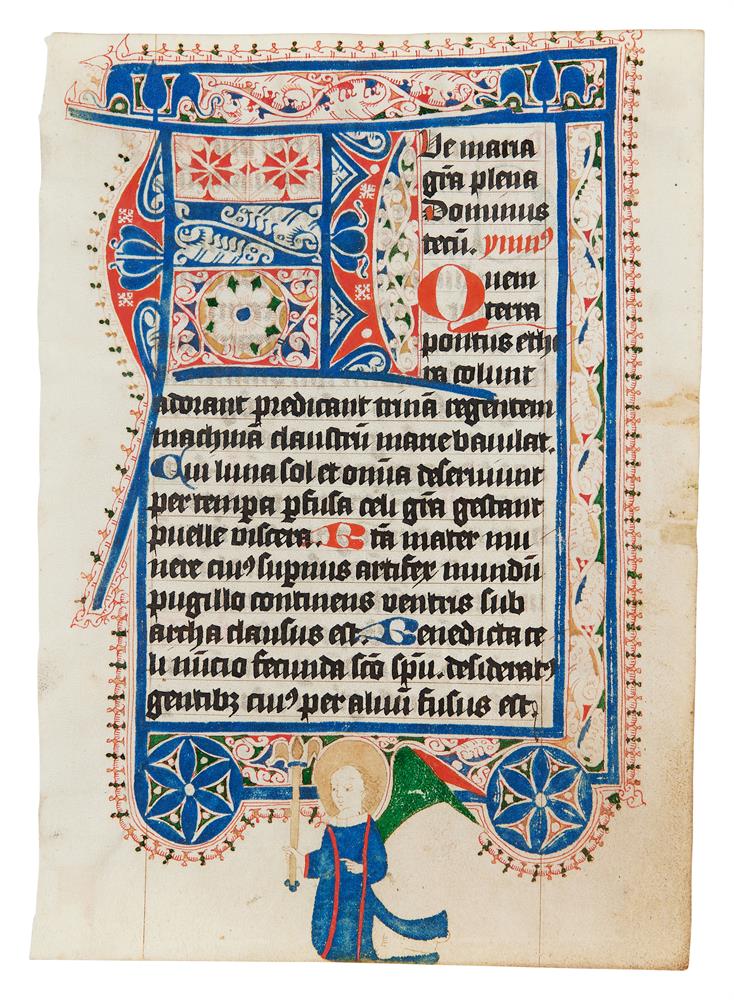 Ve maria
gr̄a plena
Dominus
tecū. ymnꝰ
Quem
terra
pontus ethe
ra colunt
adorant predicant trinā regentem
machinā claustrū marie baiulat.
Cui luna sol et om̄ia deseruiunt
per tempa pfusa celi gr̄a gestant
puelle viscera. Btā mater mu
nere cuiꝰ supnus artifex mundū
pugillo continens ventris sub
archa clausus est. Benedicta ce
li nūcio fecunda sc̄o spū. desideratꝰ
gentibꝫ cuiꝰ per aluū fusus est.